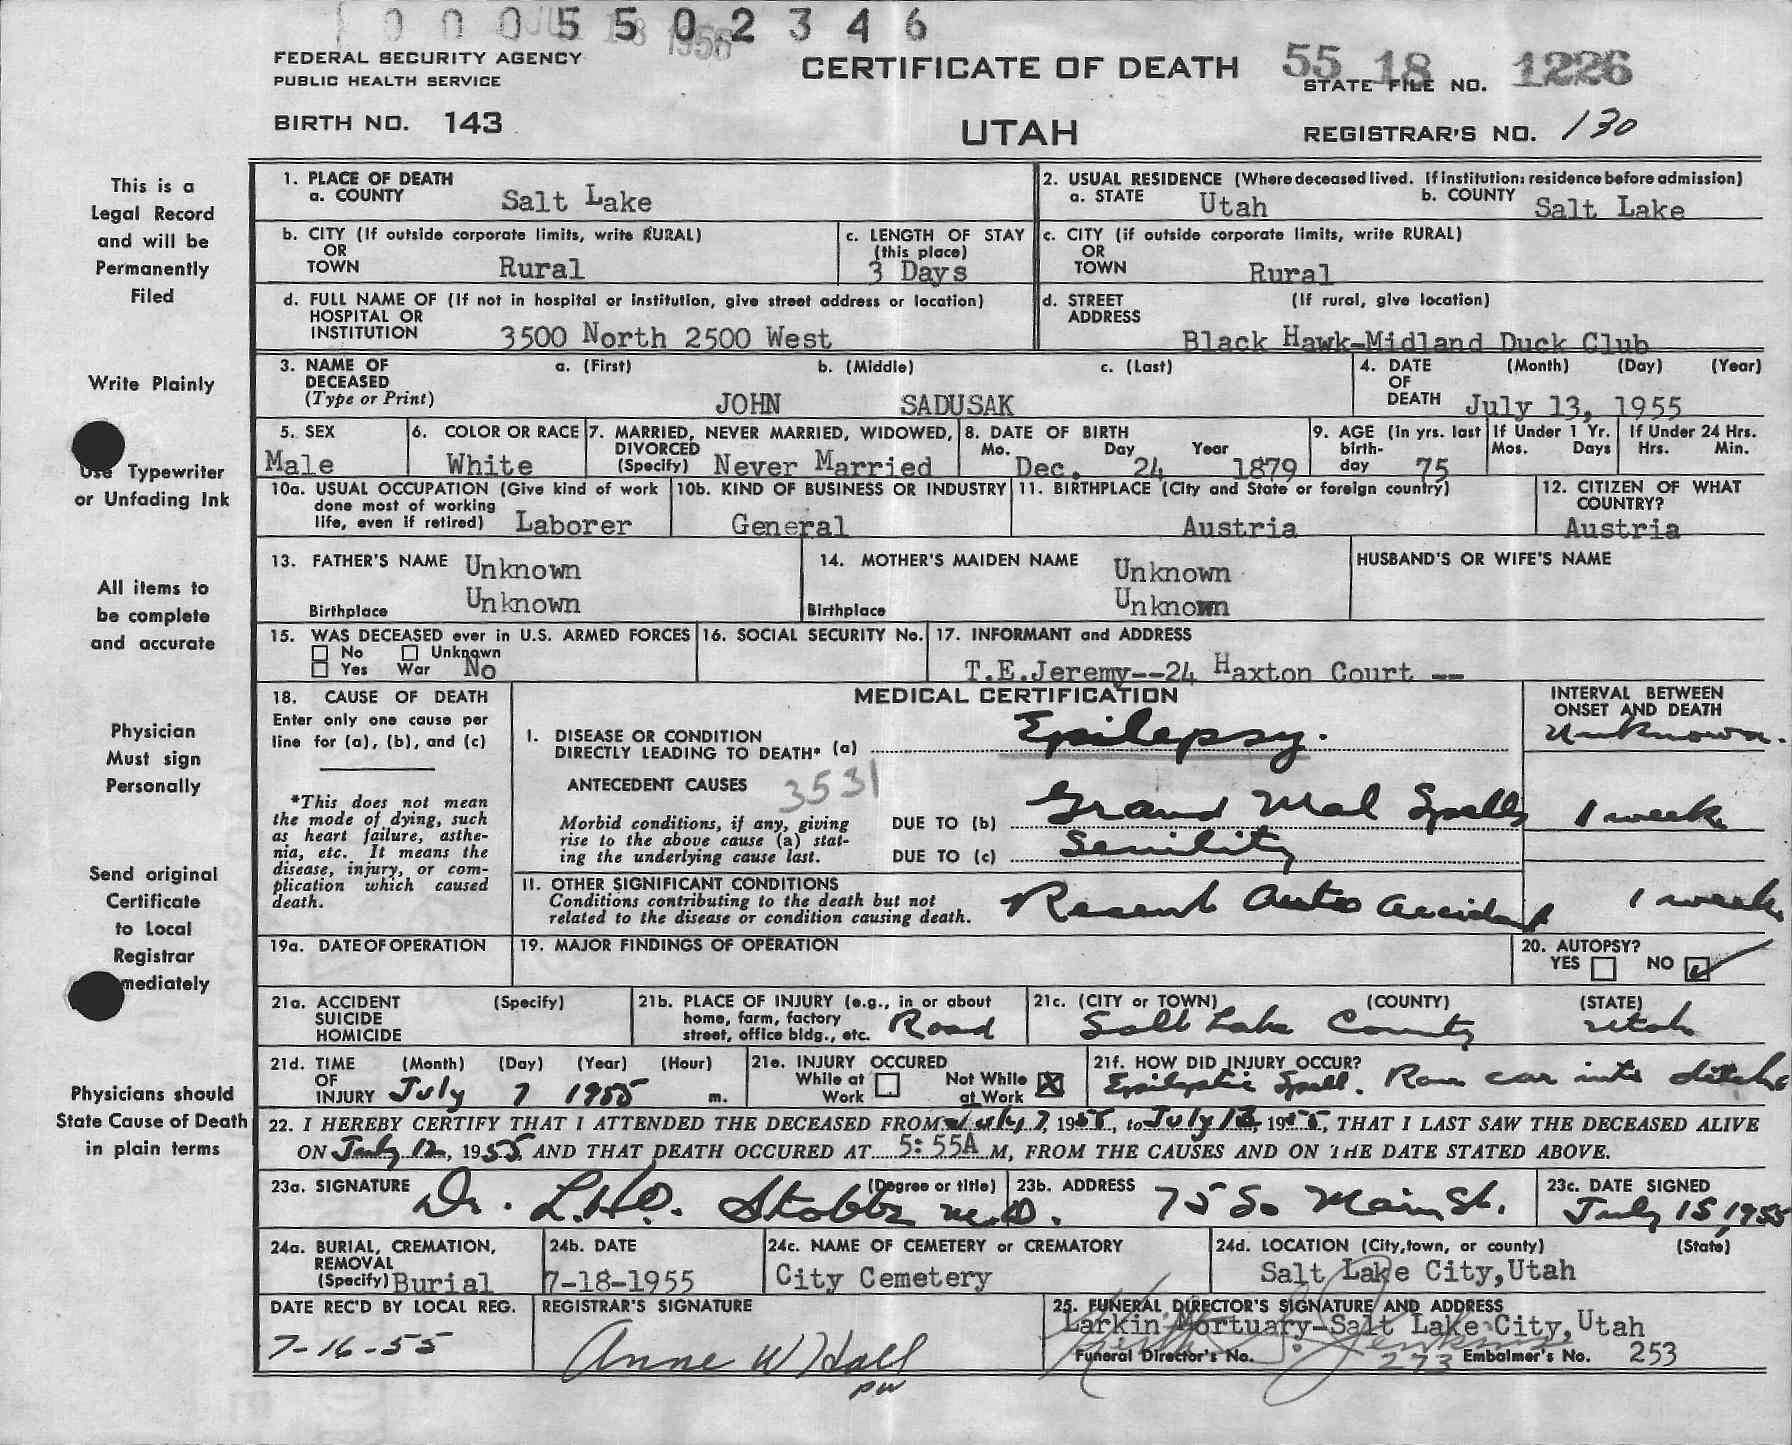 0005502346
JUL 18 1956
FEDERAL SECURITY AGENCY
PUBLIC HEALTH SERVICE
BIRTH NO. 143
CERTIFICATE OF DEATH
UTAH
55 18 1226
STATE FILE NO.
REGISTRAR'S NO. 130
This is a
Legal Record
and will be
Permanently
Filed
Write Plainly
Use Typewriter
or Unfading Ink
All items to
be complete
and accurate
Physician
Must sign
Personally
Send original
Certificate
to Local
Registrar
mediately
Physicians should
State Cause of Death
in plain terms
1. PLACE OF DEATH
a. COUNTY Salt Lake
2. USUAL RESIDENCE (Where deceased lived. If institution: residence before admission)
a. STATE Utah b. COUNTY Salt Lake
b. CITY (If outside corporate limits, write RURAL)
OR
TOWN Rural
c. LENGTH OF STAY
(this place)
3 Days
c. CITY (if outside corporate limits, write RURAL)
OR
TOWN Rural
d. FULL NAME OF (If not in hospital or institution, give street address or location)
HOSPITAL OR
INSTITUTION 3500 North 2500 West
d. STREET (If rural, give location)
ADDRESS
Black Hawk-Midland Duck Club
3. NAME OF a. (First) b. (Middle) c. (Last)
DECEASED
(Type or Print) JOHN SADUSAK
4. DATE (Month) (Day) (Year)
OF
DEATH July 13, 1955
5. SEX
Male
6. COLOR OR RACE
White
7. MARRIED, NEVER MARRIED, WIDOWED,
DIVORCED
(Specify) Never Married
8. DATE OF BIRTH
Mo. Day Year
Dec. 24 1879
9. AGE (In yrs. last
birth-
day 75
If Under 1 Yr.
Mos. Days
If Under 24 Hrs.
Hrs. Min.
10a. USUAL OCCUPATION (Give kind of work
done most of working
life, even if retired) Laborer
10b. KIND OF BUSINESS OR INDUSTRY
General
11. BIRTHPLACE (City and State or foreign country)
Austria
12. CITIZEN OF WHAT
COUNTRY?
Austria
13. FATHER'S NAME Unknown
Birthplace Unknown
14. MOTHER'S MAIDEN NAME Unknown
Birthplace Unknown
HUSBAND'S OR WIFE'S NAME
15. WAS DECEASED ever in U.S. ARMED FORCES
No Unknown
Yes War No
16. SOCIAL SECURITY No.
17. INFORMANT and ADDRESS
T.E.Jeremy--24 Haxton Court --
18. CAUSE OF DEATH
Enter only one cause per
line for (a), (b), and (c)
*This does not mean
the mode of dying, such
as heart failure, asthe-
nia, etc. It means the
disease, injury, or com-
plication which caused
death.
MEDICAL CERTIFICATION
INTERVAL BETWEEN
ONSET AND DEATH
I. DISEASE OR CONDITION
DIRECTLY LEADING TO DEATH* (a) Epilepsy. Unknown.
ANTECEDENT CAUSES 3531
Morbid conditions, if any, giving
rise to the above cause (a) stat-
ing the underlying cause last.
DUE TO (b) Grand Mal Spells 1 week
DUE TO (c) Senility
11. OTHER SIGNIFICANT CONDITIONS
Conditions contributing to the death but not
related to the disease or condition causing death.
Recent Auto Accident 1 week
19a. DATE OF OPERATION
19. MAJOR FINDINGS OF OPERATION
20. AUTOPSY?
YES NO
21a. ACCIDENT (Specify)
SUICIDE
HOMICIDE
21b. PLACE OF INJURY (e.g., in or about
home, farm, factory
street, office bldg., etc. Road
21c. (CITY or TOWN) (COUNTY) (STATE)
Salt Lake County Utah
21d. TIME (Month) (Day) (Year) (Hour)
OF
INJURY July 7 1955 m.
21e. INJURY OCCURED
While at Not While
Work at Work
21f. HOW DID INJURY OCCUR?
Epileptic Spell. Ran car into ditch
22. I HEREBY CERTIFY THAT I ATTENDED THE DECEASED FROM July 7, 1955, to July 13, 1955, THAT I LAST SAW THE DECEASED ALIVE
ON July 12, 1955 AND THAT DEATH OCCURED AT 5:55A M, FROM THE CAUSES AND ON THE DATE STATED ABOVE.
23a. SIGNATURE (Degree or title)
Dr. L.H.O. Stobbe M.D.
23b. ADDRESS 75 So Main St.
23c. DATE SIGNED
July 15, 1955
24a. BURIAL, CREMATION,
REMOVAL
(Specify) Burial
24b. DATE
7-18-1955
24c. NAME OF CEMETERY or CREMATORY
City Cemetery
24d. LOCATION (City, town, or county) (State)
Salt Lake City, Utah
DATE REC'D BY LOCAL REG.
7-16-55
REGISTRAR'S SIGNATURE
Anne W Hall
pw
25. FUNERAL DIRECTOR'S SIGNATURE AND ADDRESS
Larkin Mortuary-Salt Lake City, Utah
Funeral Director's No. 273 Embalmer's No. 253